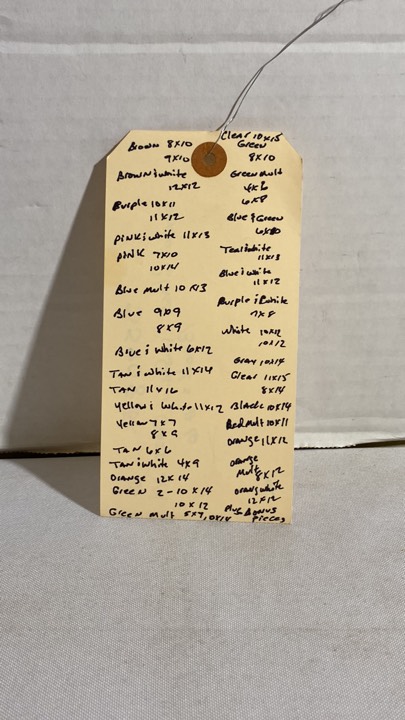 Brown 8x10
9x10
Brown & white
12x12
Purple 10x11
11x12
Pink & white 11x13
Pink 7x10
10x14
Blue mult 10x13
Blue 9x9
8x9
Blue & white 6x12
Tan & white 11x14
Tan 11x16
Yellow & white 11x12
Yellow 7x7
8x9
Tan 6x6
Tan & white 4x9
Orange 12x14
Green 2-10x14
10x12
Green mult 5x7, 10x14
Clear 10x15
Green
8x10
Green mult
4x6
6x8
Blue & Green
Teal & white
11x13
Blue & white
11x12
Purple & white
7x8
White 10x12
10x12
Gray 10x14
Clear 11x15
8x14
Black 10x14
Red mult 10x11
Orange 11x12
Orange
mult
8x12
Orange white
12x12
Plus Bonus
Pieces